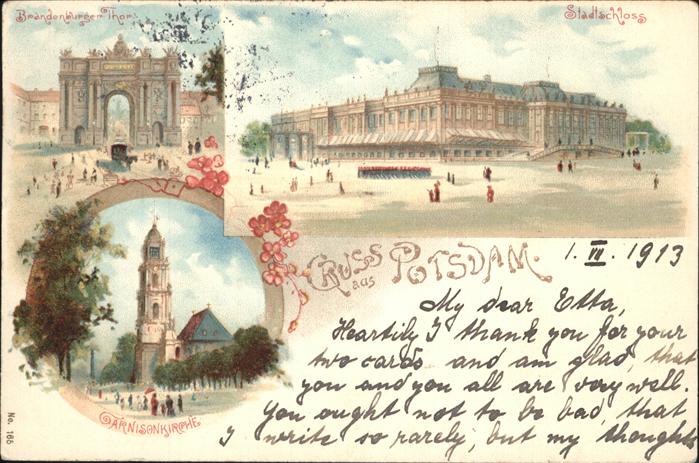 Brandenburger Thor.
Stadtschloss
GRUSS aus POTSDAM.
GARNISONKIRCHE
No. 165
1. III. 1913
My dear Etta,
Heartily I thank you for your
two cards and am glad, that
you and you all are very well.
You ought not to be bad, that
I write so rarely, but my thoughts